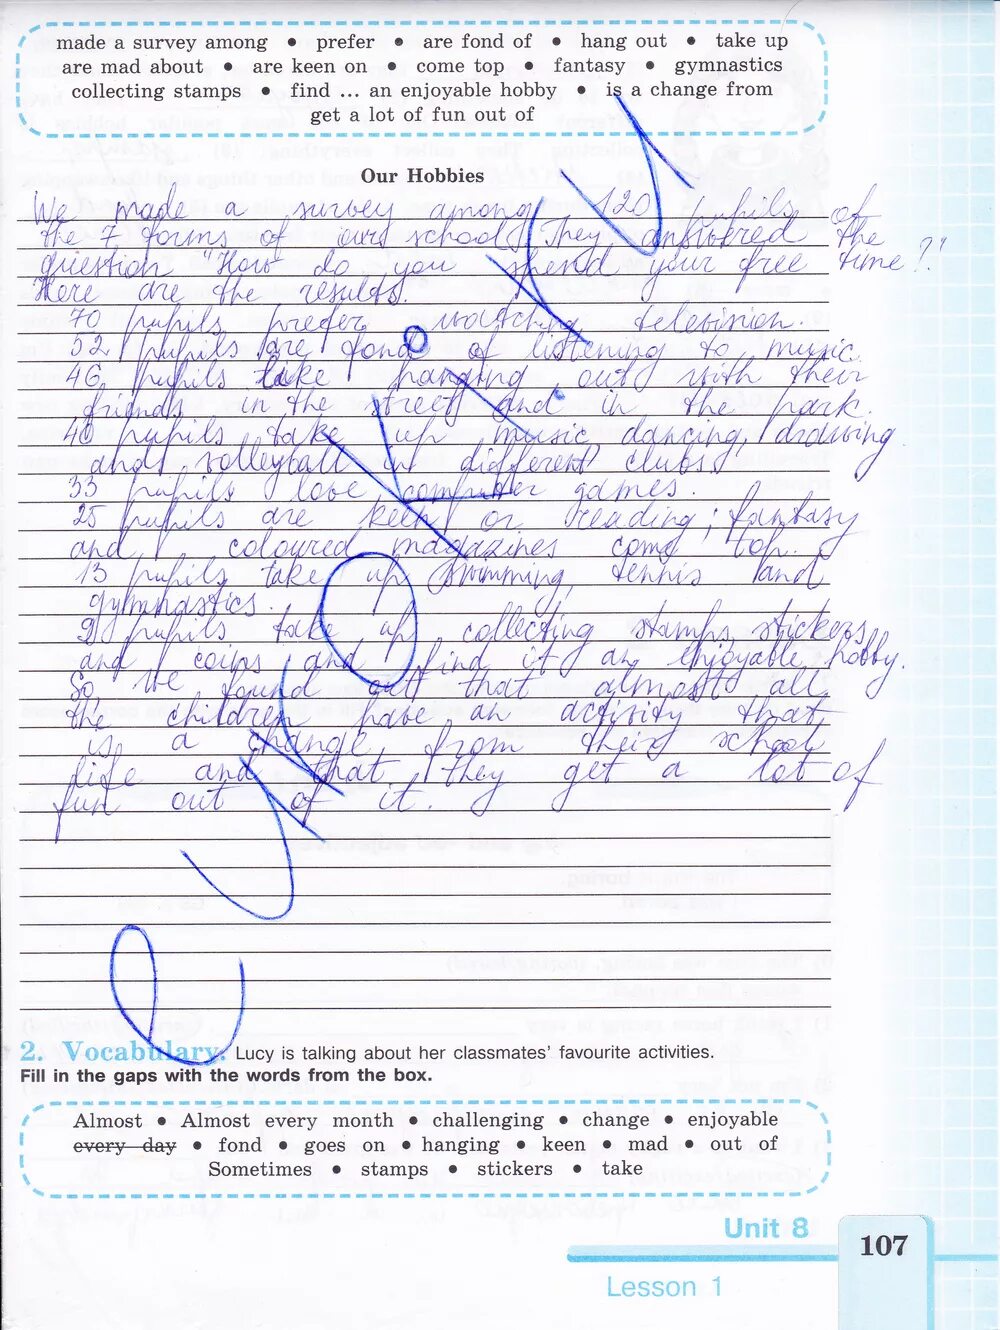 made a survey among • prefer • are fond of • hang out • take up
are mad about • are keen on • come top • fantasy • gymnastics
collecting stamps • find ... an enjoyable hobby • is a change from
get a lot of fun out of
Our Hobbies
We made a survey among 120 pupils of
the 7 forms of our school. They answered the
question "How do you spend your free time?"
Here are the results.
70 pupils prefer watching television.
52 pupils are fond of listening to music.
46 pupils like hanging out with their
friends in the street and in the park.
40 pupils take up music, dancing, drawing
and volleyball in different clubs.
33 pupils love computer games.
25 pupils are keen on reading; fantasy
and coloured magazines come top.
13 pupils take up swimming, tennis and
gymnastics.
9 pupils take up collecting stamps, stickers
and coins and find it an enjoyable hobby.
So we found out that almost all
the children have an activity that
is a change from their school
life and that they get a lot of
fun out of it.
2. Vocabulary. Lucy is talking about her classmates' favourite activities.
Fill in the gaps with the words from the box.
Almost • Almost every month • challenging • change • enjoyable
every day • fond • goes on • hanging • keen • mad • out of
Sometimes • stamps • stickers • take
Unit 8
107
Lesson 1